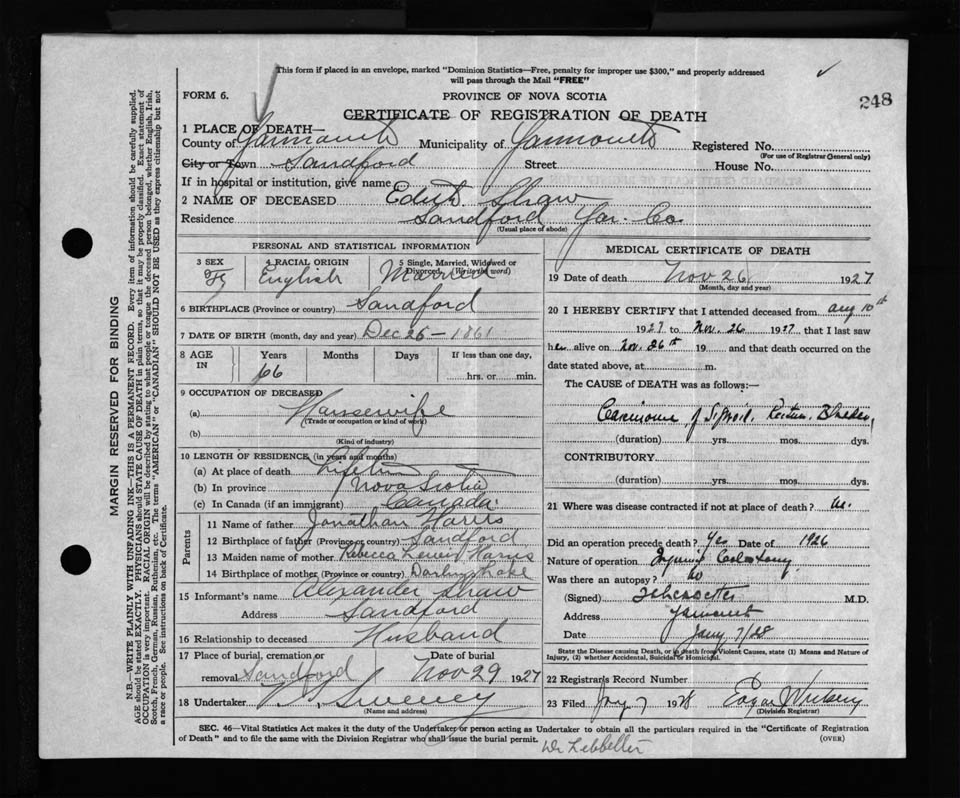 This form if placed in an envelope, marked "Dominion Statistics—Free, penalty for improper use $300," and properly addressed
will pass through the Mail "FREE"
FORM 6.
PROVINCE OF NOVA SCOTIA
248
CERTIFICATE OF REGISTRATION OF DEATH
1 PLACE OF DEATH—
County of Yarmouth Municipality of Yarmouth Registered No.
(For use of Registrar General only)
City or Town Sandford Street House No.
If in hospital or institution, give name
2 NAME OF DECEASED Edith Shaw
Residence Sandford Yar. Co.
(Usual place of abode)
PERSONAL AND STATISTICAL INFORMATION
3 SEX 4 RACIAL ORIGIN 5 Single, Married, Widowed or Divorced (Write the word)
F English Married
6 BIRTHPLACE (Province or country) Sandford
7 DATE OF BIRTH (month, day and year) Dec 25 - 1861
8 AGE IN Years Months Days If less than one day,
66 hrs. or min.
9 OCCUPATION OF DECEASED
(a) Housewife
(Trade or occupation or kind of work)
(b)
(Kind of industry)
10 LENGTH OF RESIDENCE (in years and months)
(a) At place of death
(b) In province Nova Scotia
(c) In Canada (if an immigrant) Canada
Parents
11 Name of father Jonathan Harris
12 Birthplace of father (Province or country) Sandford
13 Maiden name of mother Rebecca Harris
14 Birthplace of mother (Province or country) Lake
15 Informant's name Alexander Shaw
Address Sandford
16 Relationship to deceased Husband
17 Place of burial, cremation or removal Date of burial
Sandford Nov 29 1927
18 Undertaker Sweeney
(Name and address)
MEDICAL CERTIFICATE OF DEATH
19 Date of death Nov 26 1927
(Month, day and year)
20 I HEREBY CERTIFY that I attended deceased from Aug 10th
1927 to Nov. 26 1927 that I last saw
her alive on Nov. 26th 19 and that death occurred on the
date stated above, at m.
The CAUSE of DEATH was as follows:—
Carcinoma of Sigmoid, Rectum, Bladder,
(duration) yrs. mos. dys.
CONTRIBUTORY
(duration) yrs. mos. dys.
21 Where was disease contracted if not at place of death?
Did an operation precede death? Yes Date of 1926
Nature of operation Colostomy
Was there an autopsy? no
(Signed) M.D.
Address Yarmouth
Date Jany 7/28
State the Disease causing Death, or in death from Violent Causes, state (1) Means and Nature of
Injury, (2) whether Accidental, Suicidal or Homicidal.
22 Registrar's Record Number
23 Filed Jany 7 1928 Edgar
(Division Registrar)
SEC. 46—Vital Statistics Act makes it the duty of the Undertaker or person acting as Undertaker to obtain all the particulars required in the "Certificate of Registration
of Death" and to file the same with the Division Registrar who shall issue the burial permit.
(OVER)
Dr
MARGIN RESERVED FOR BINDING
N.B.—WRITE PLAINLY WITH UNFADING INK—THIS IS A PERMANENT RECORD. Every item of information should be carefully supplied.
AGE should be stated EXACTLY. PHYSICIANS should STATE CAUSE OF DEATH in plain terms, so that it may be properly classified. Exact statement of
OCCUPATION is very important. RACIAL ORIGIN will be described by stating to what people or tongue the deceased person belonged, whether English, Irish,
Scotch, French, German, Russian, Ruthenian, etc. The terms "AMERICAN" or "CANADIAN" SHOULD NOT BE USED as they express citizenship but not
a race or people. See instructions on back of Certificate.